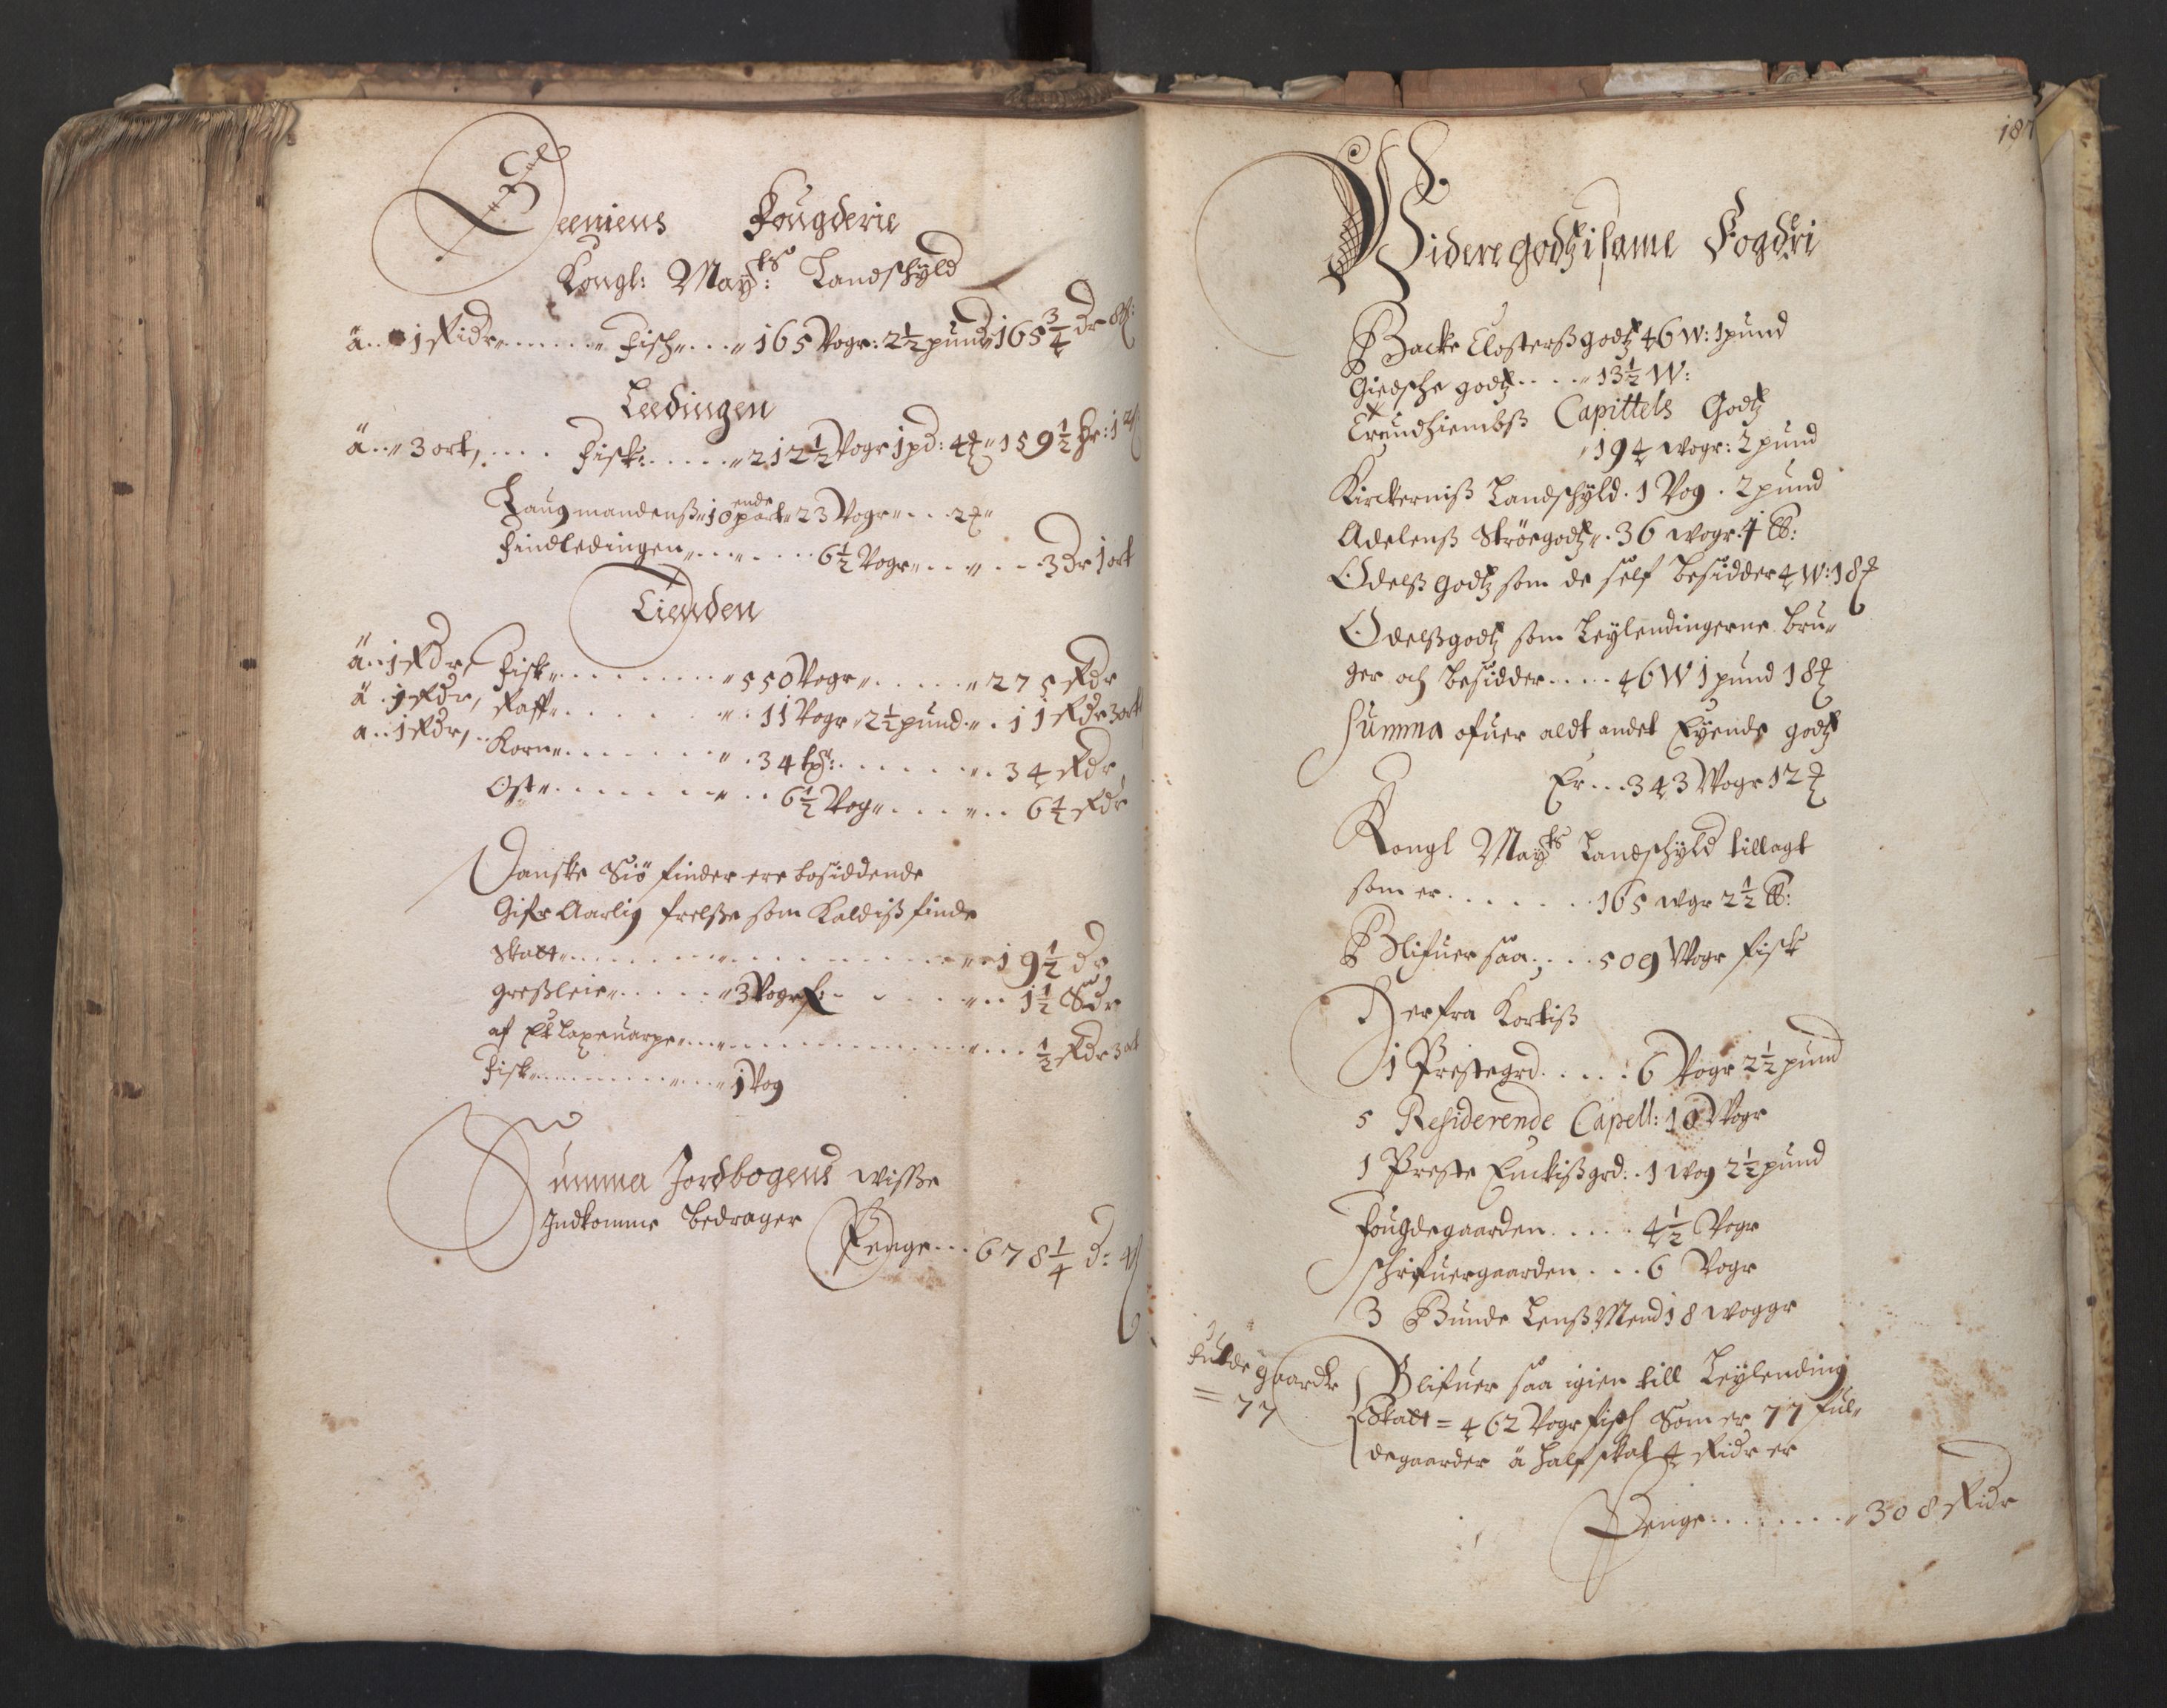 Seeniens Fougderie
Kongl: May:ts Landschyld
ä . . 1 Ridr . . . . . Fisch . . . 165 Vogr: 2½ pund 165¾ dr 8 s:
Leedingen
ä . . 3 ort, . . . . Fisk: . . . . . 212½ Vogr 1 pd: 4 . . 159½ dr: 12
Laugmandenß 10 ende part 23 Vogr . . . 2
Findledingen . . . . . . 6½ Vogr . . . . 3 Dr 1 ort
Tienden
ä . . ½ Rdr, Fisk . . . . . . . . . 550 Vogr . . . . . 275 Rdr
ä . 1 Rdr, Raff . . . . . . . 11 Vogr 2¼ pund . . 11 Rdr 3 ort
a . . 1 Rdr, . . Korn . . . . . . . . 34 tr: . . . . . . . 34 Rdr
Ost . . . . . . . . . 6½ Vog . . . . . . 6½ Rdr
Danske Siö finder ere bosiddende
Gifr Aarlig frelße som Kaldiß finde
Skatt . . . . . . . . . . . . . . . 19½ dr
Greßleie . . . . . 3 Vogr f: . . . . . . . 1½ Rdr
af Et Laxeuarpe . . . . . . . . . . . ½ Rdr 3 ort
Fisk . . . . . . . . . 1 Vog
Summa Jordbogens wisse
Indkomme bedrager
Penge . . . 678¼ d:
187
Videre godtz i same Fogdri
Backe Closterß godtz 46 W: 1 pund
Giedsche godtz . . . . 13½ W:
Trundhiembß Capittels Godtz
194 wogr: 2 pund
Kirckerniß Landschyld . 1 Vog . 2 pund
Adelenß Ströegodtz . 36 wogr . 1 lb:
Odelß godtz som de self besidder 4 W: 18
Odelßgodtz som Leylendingerne bru-
ger och besidder . . . . 46 W 1 pund 18
Summa ofuer aldt andet Eyende godtz
Er . . . 343 Wogr 12
Kongl May:ts Landschyld tillagt
som er . . . . . . . 165 wgr 2½ lb:
Blifuer saa . . . . 509 Wogr fisk
Herfra Kortiß
1 Prestegrd . . . . . 6 Vogr 2½ pund
5 Residerende Capell: 10 Vogr
1 Preste Enckißgrd: . 1 Wog 2½ pund
Fougdegaarden . . . . . 4½ Vogr
Schrifuergaarden . . . 6 Vogr
3 Bunde LenßMend 18 woggr
Fulde gaarde
= 77
Blifuer saa igien till Leylending
Skatt = 462 Vogr fisch Som er 77 ful-
degaarder ä half skat 4 Ridr er
Penge . . . . . . . 308 Ridr